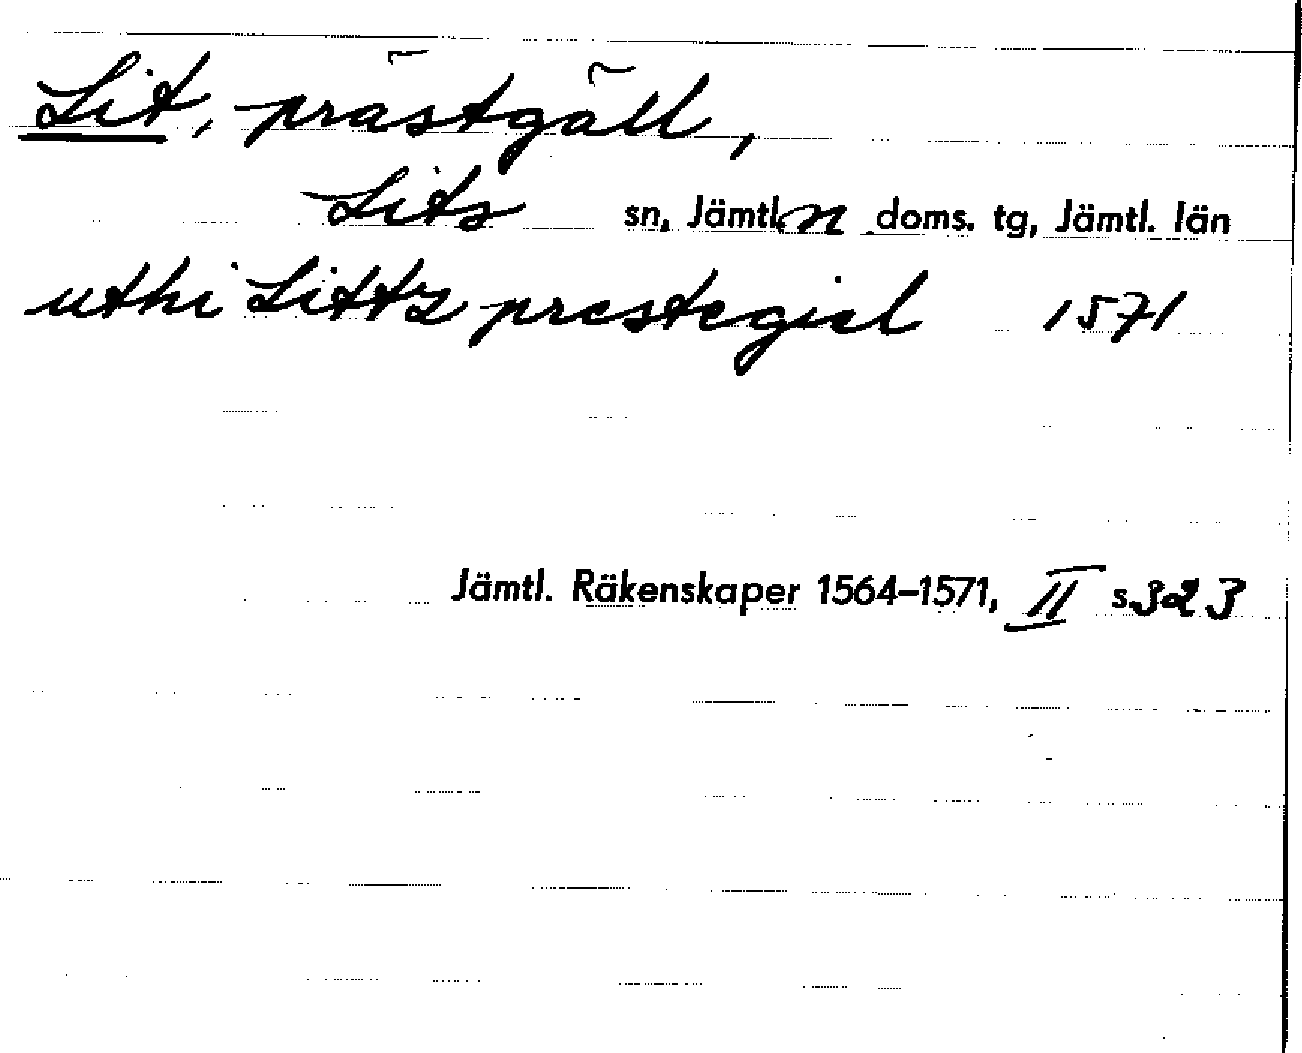 Lit, prästgäll,
Lits sn, Jämtl. n doms. tg, Jämtl. län
uthi Littz prestegiel 1571
Jämtl. Räkenskaper 1564–1571, II s. 323